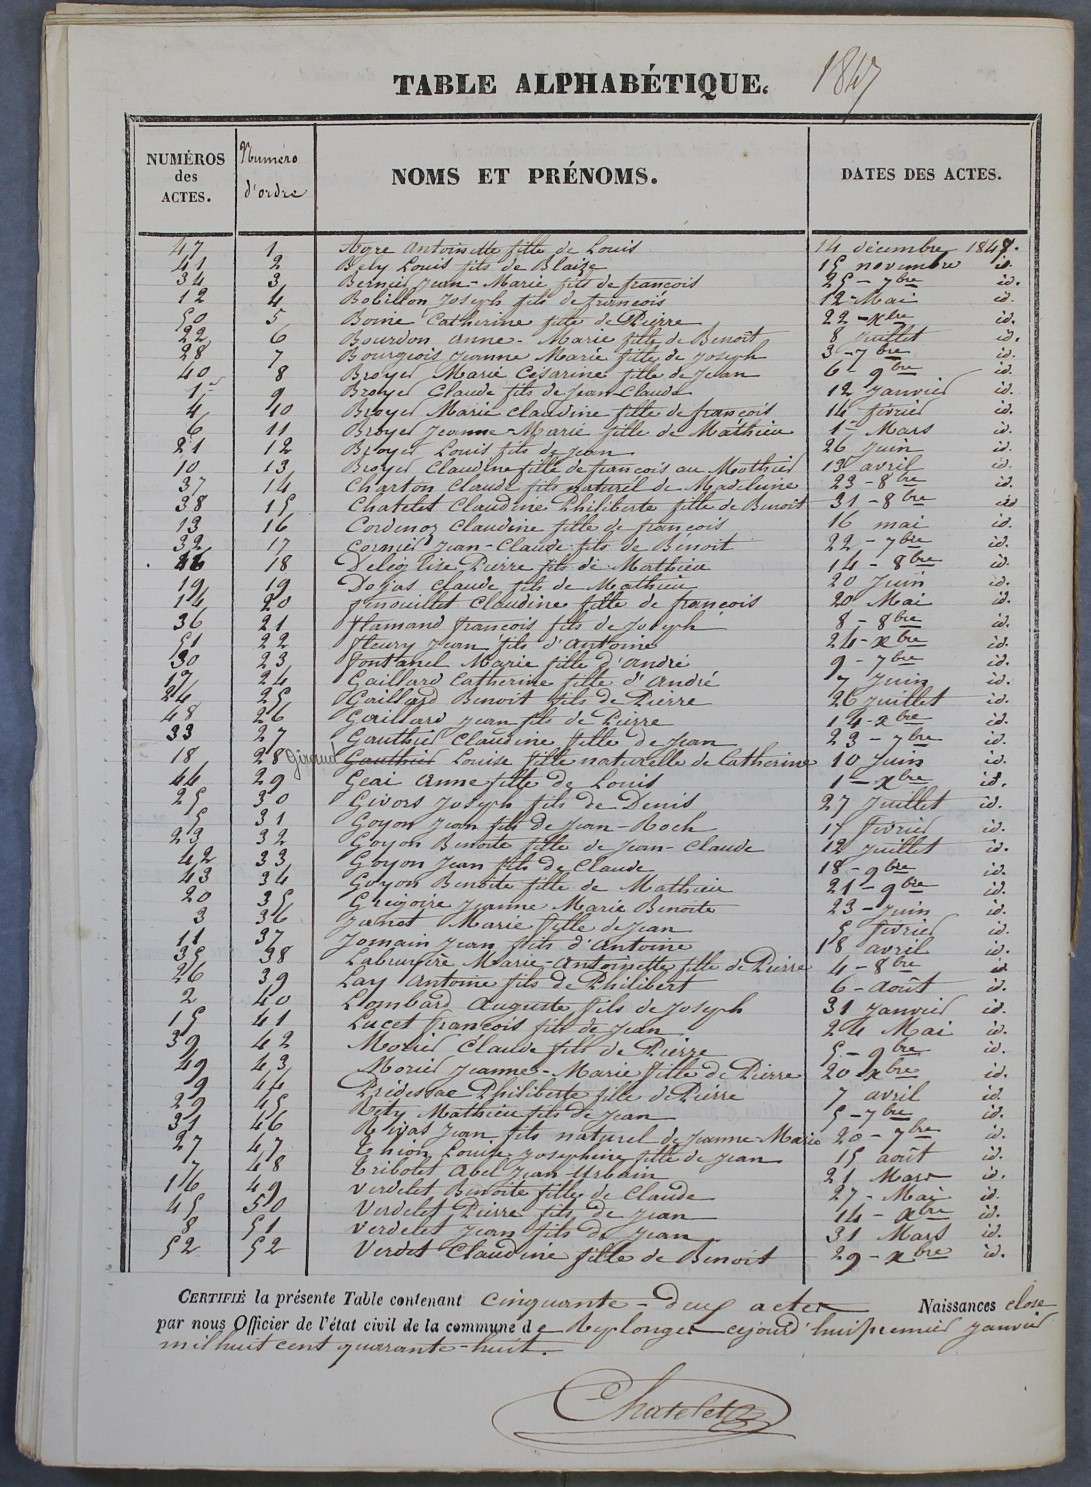 TABLE ALPHABÉTIQUE. 1847
NUMÉROS des ACTES. Numéro d'ordre NOMS ET PRÉNOMS. DATES DES ACTES.
47 1 Agre Antoinette fille de Louis 14 décembre 1847.
41 2 Bely Louis fils de Blaize 15 novembre id.
34 3 Jean-Marie fils de françois 25 - 7bre id.
12 4 Bobillon Joseph fils de francois 12 - Mai id.
50 5 Catherine fille de Pierre 22 - xbre id.
22 6 Bourdon Anne-Marie fille de Benoît 8 Juillet id.
28 7 Bourgeois Jeanne Marie fille de Joseph 3 - 7bre id.
40 8 Broyer Marie Césarine fille de Jean 6 - 9bre id.
1er 9 Broyer Claude fils de Jean Claude 12 janvier id.
4 10 Broyer Marie Claudine fille de françois 14 février id.
6 11 Broyer Jeanne-Marie fille de Mathieu 1er Mars id.
21 12 Broyer Louis fils de Jean 26 Juin id.
10 13 Broyer Claudine fille de francois au Mothier 13 avril id.
37 14 Charton Claude fils naturel de Madeleine 23 - 8bre id.
38 15 Chatelet Claudine Philiberte fille de Benoit 31 - 8bre id
13 16 Claudine fille de françois 16 mai id.
32 17 Cornier Jean-Claude fils de Benoit 22 - 7bre id.
18 Pierre fils de Mathieu 14 - 8bre id.
19 19 Dojas Claude fils de Mathieu 20 Juin id.
14 20 fenouillet Claudine fille de françois 20 Mai id.
36 21 flamand francois fils de Joseph 8 - 8bre id.
51 22 fleury Jean fils d'Antoine 24 - xbre id.
30 23 fontanel Marie fille d'andré 9 - 7bre id.
17 24 Gaillard Catherine fille d'André 7 Juin id.
24 25 Gaillard Benoit fils de Pierre 26 juillet id.
48 26 Gaillard Jean fils de Pierre 14 - xbre id.
33 27 Gauthier Claudine fille de Jean 23 - 7bre id.
18 28 Giraud Gauthier Louise fille naturelle de Catherine 10 Juin id.
44 29 Geai Anne fille de Louis 1er - xbre id.
25 30 Givors Joseph fils de Denis 27 Juillet id.
5 31 Goyon Jean fils de Jean-Roch 17 février id.
23 32 Goyon Benoite fille de Jean-Claude 12 Juillet id.
42 33 Goyon Jean fils de Claude 18 - 9bre id.
43 34 Goyon Benoite fille de Mathieu 21 - 9bre id.
20 35 Grégoire Jeanne Marie Benoite 23 - Juin id.
3 36 Janet Marie fille de Jean 5 février id.
11 37 Jomain Jean fils d'Antoine 18 avril id.
35 38 Labruyère Marie-Antoinette fille de Pierre 4 - 8bre id
26 39 Lay Antoine fils de Philibert 6 - août id.
2 40 Lombard Auguste fils de Joseph 31 Janvier id.
15 41 Lucet francois fils de Jean 24 Mai id.
39 42 Morier Claude fils de Pierre 5 - 9bre id.
49 43 Morier Jeanne-Marie fille de Pierre 20 - xbre id.
9 44 Prédessac Philiberte fille de Pierre 7 avril id.
29 45 Réty Mathieu fils de Jean 5 - 7bre id.
31 46 Rivas Jean fils naturel de Jeanne-Marie 20 - 7bre id.
27 47 Thion Louise Josephine fille de Jean 15 août id.
7 48 Tribolet Abel Jean-Urbain 21 Mars id.
16 49 Verdelet Benoite fille de Claude 27 - Mai id
45 50 Verdelet Pierre fils de Jean 14 - xbre id.
8 51 Verdelet Jean fils de Jean 31 Mars id.
52 52 Verdet Claudine fille de Benoit 29 - xbre id.
CERTIFIÉ la présente Table contenant cinquante-deux actes Naissances close
par nous Officier de l'état civil de la commune de Replonges cejourd'hui premier janvier
mil huit cent quarante-huit.
Chatelet